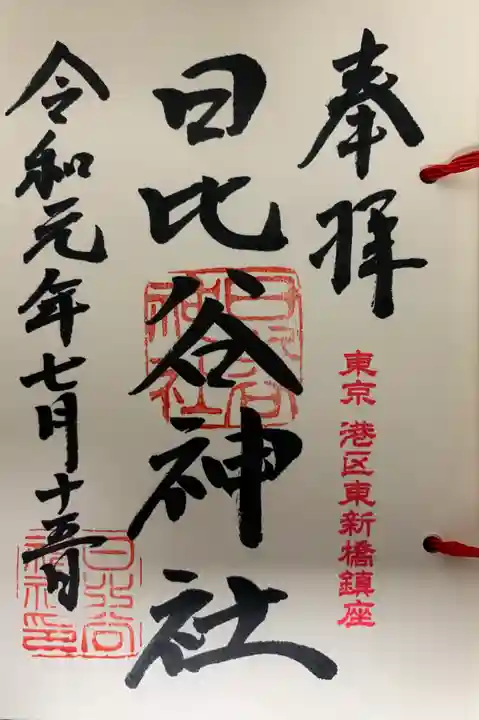 奉拝
東京 港区東新橋鎮座
日比谷神社
日比谷神社
令和元年七月十五日
日比谷神社印